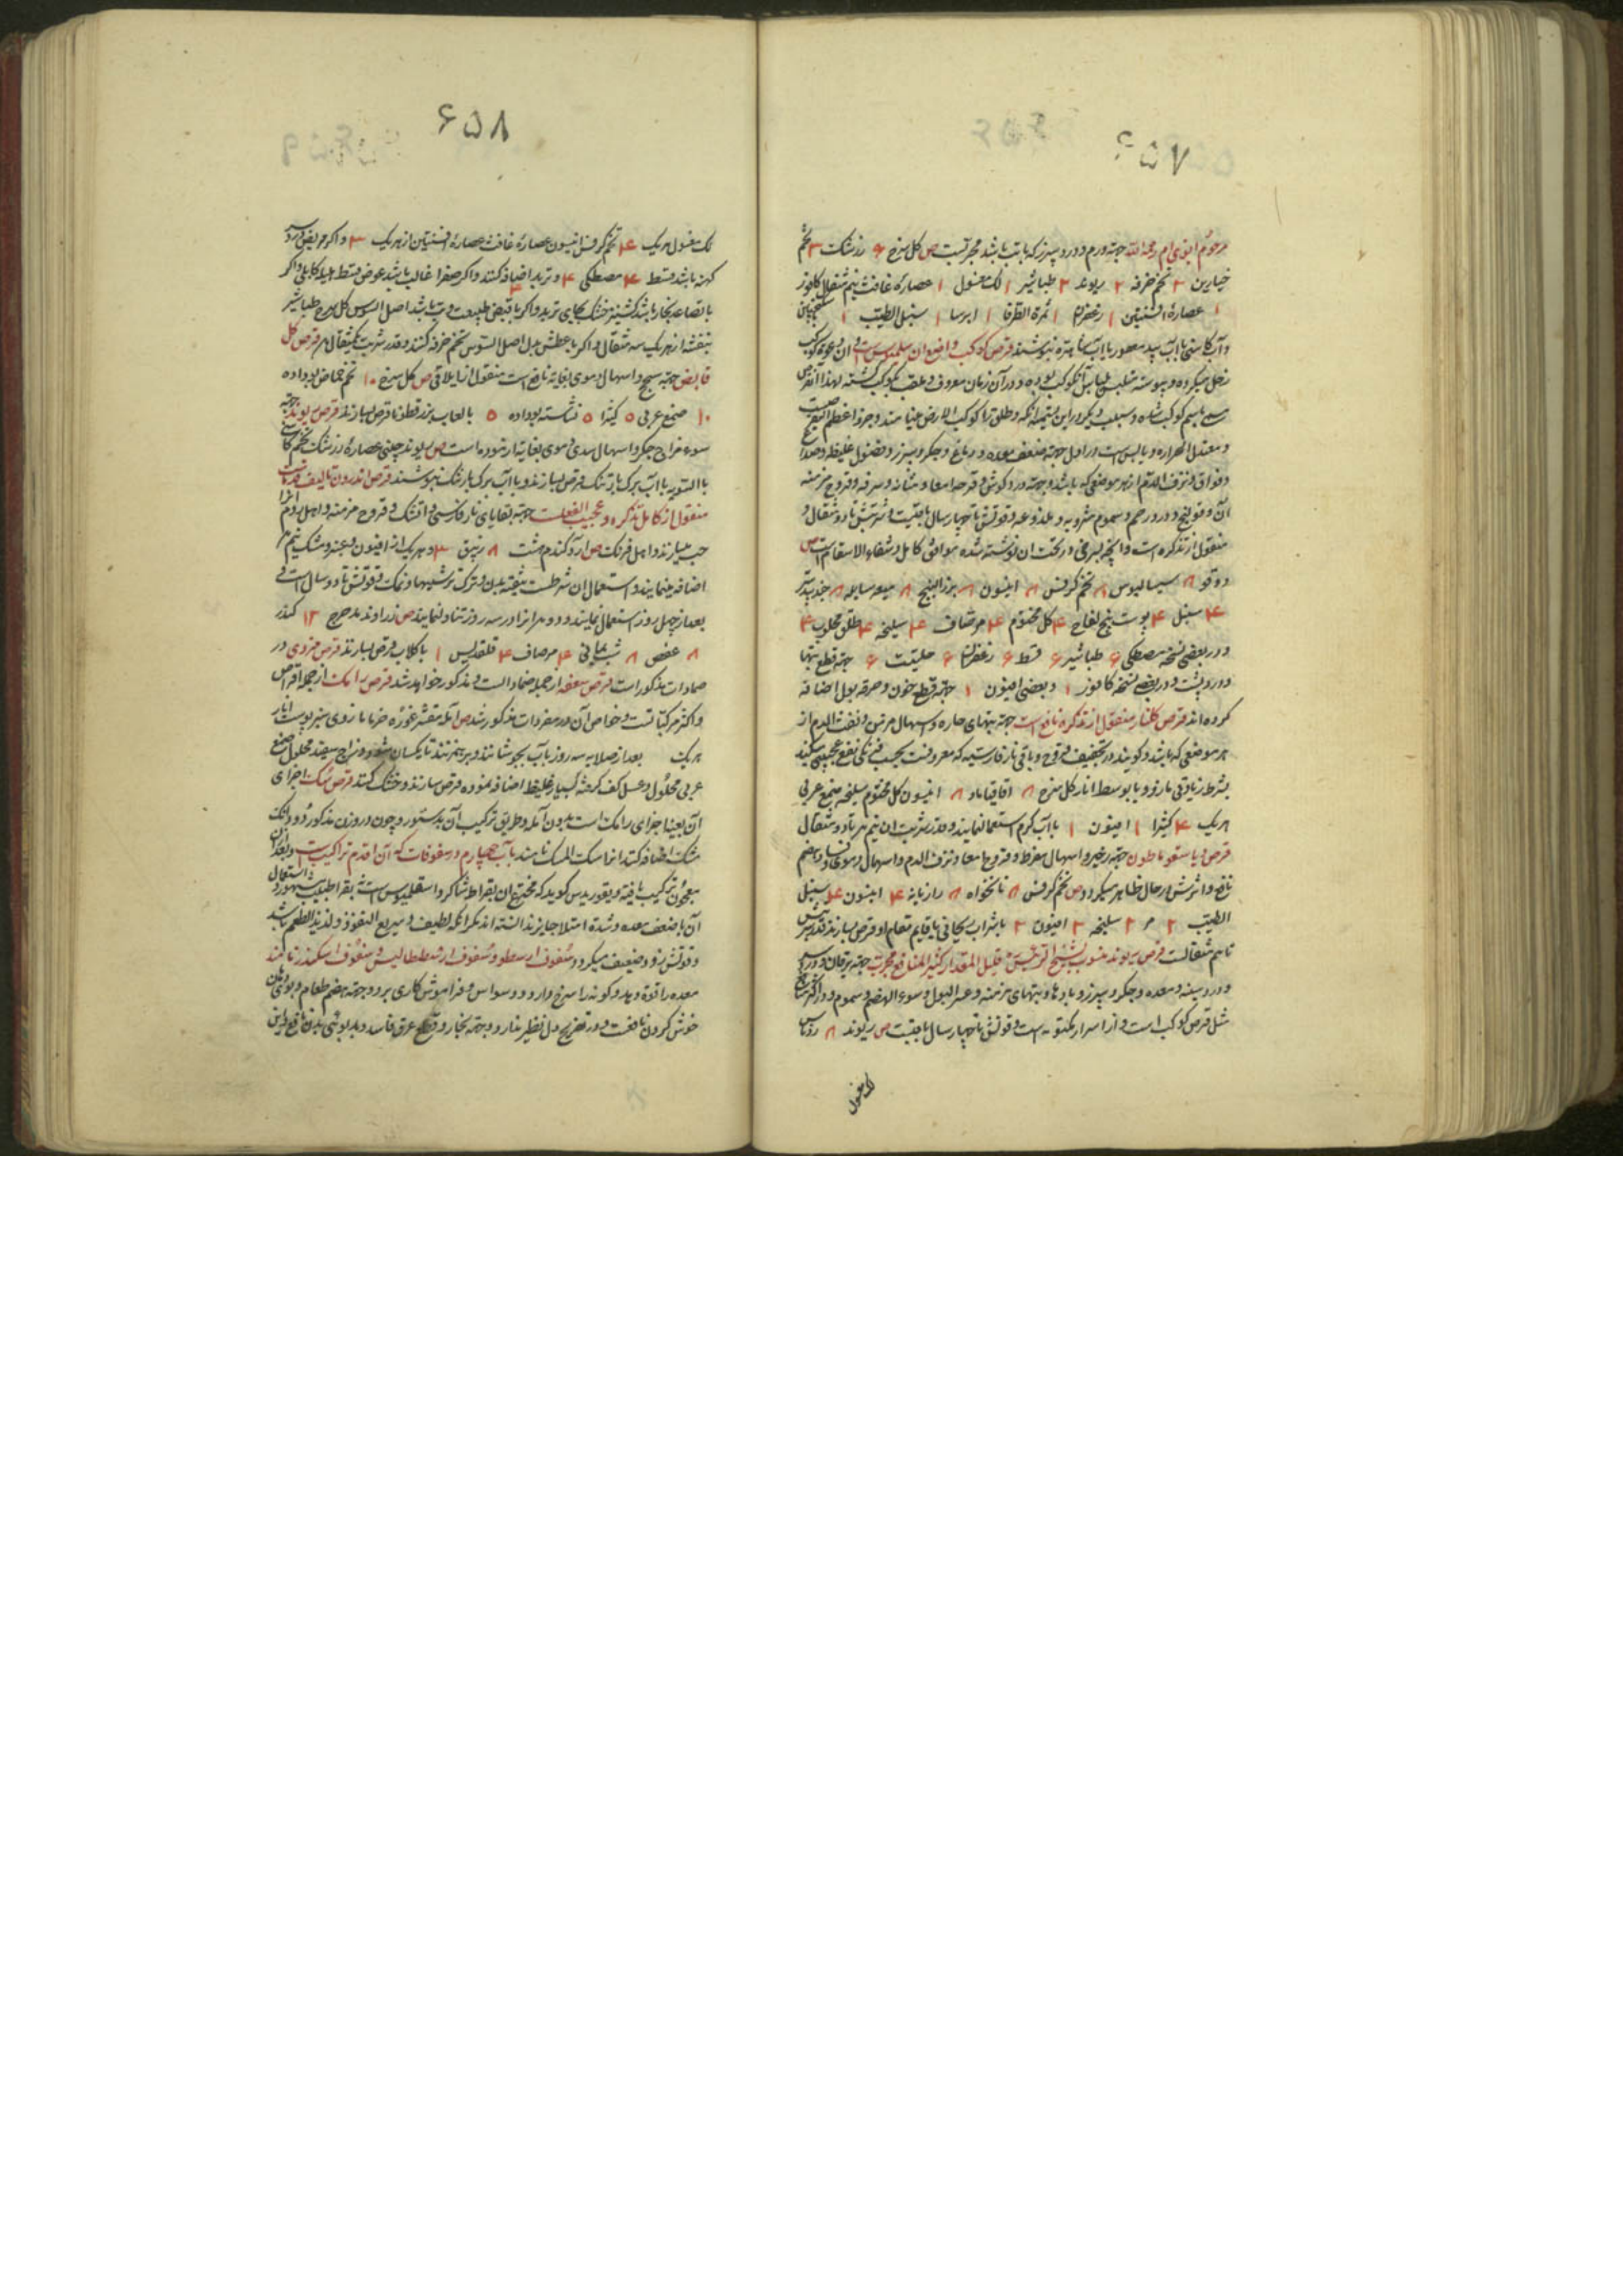 ۶۵۷
مرحوم ابوی ام رحمه الله جهة ورم و درد سپرز که با تب باشد مجربست ص کل سرخ ۶ زرشک ۳ تخم
خیارین ۳ تخم خرفه ۲ ریوند ۲ طباشیر ۱ لک مغسول ۱ عصارۀ غافث نیم مثقال کافور
۱ عصارۀ افسنتین ۱ زعفران ۱ ثمرة الطرفا ۱ ایرسا ۱ سنبل الطیب ۱ سکنجبین
و آب کاسنی یا آب بید معصور یا آب شاهتره بنوشند قرص کوکب واضع ان
زحل میکرده و پیوسته
بکوکب شاه و طلق را کوکب الارض مینامند و جزو اعظم
و معتدل الحراره و یابس است در اول جهة ضعف معده و دماغ و جکر و سپرز و فضول غلیظه و صداع
و فواق و نزف الدم از هر موضعی که باشد و جهة درد کوش و قرحه امعا و مثانه و سرفه و قروح مزمنه
آن و قولنج و درد رحم و سموم مشروبه و ملدوغه و قوتش تا چهار سال باقیست و شربتش تا دو مثقال و
منقول از تذکره است و آنچه در تحت ان نوشته شده موافق کامل و شفاء الاسقام است ص
دوقو ۸ سیسالیوس ۸ تخم کرفس ۸ انیسون ۸ بزر البنج ۸ میعه سایله ۸ جندبیدستر
۴ سنبل ۴ پوست بیخ لفاح ۴ کل مختوم ۴ مر صاف ۴ سلیخه ۴ طلق محلوب ۴
و در بعضی نسخه مصطکی ۶ طباشیر ۶ قسط ۶ زعفران ۶ حلتیت ۶ جهة قطع تبها
و درد پشت و در بعضی نسخه کافور ۱ و بعضی افیون ۱ جهة قطع خون و حرقه بول اضافه
کرده اند قرص کلنار منقول از تذکره نافع است جهة تبهای حاره و اسهال مزمن و نفث الدم از
هر موضعی که باشد و کویند در تجفیف قروح و باقی نار فارسیه که معروفست
بشرط زیادتی مازو و یا بوسط انار کل سرخ ۸ اقاقیا ۸ انیسون کل مختوم سلیخه صمغ عربی
هریک ۴ کثیرا ۱ افیون ۱ با آب کرم استعمال نمایند و قدر شربت ان نیم درهم تا دو مثقال
قرص دیاسقوناطون جهة زحیر و اسهال مفرط و قروح امعا و نزف الدم و اسهال دموی
نافع و اثرش در حال ظاهر میکردد ص تخم کرفس ۸ نانخواه ۸ رازیانه ۴ انیسون ۴ سنبل
الطیب ۲ مر ۲ سلیخه ۲ افیون ۲ باشراب ریحانی یا قایم مقام او قرص بسازند قدر شربتش
تا نیم مثقالست قرص ریوند منسوب بشیخ الرئیس قلیل المقدار کثیر المنافع مجرب جهة یرقان و درد
و درد سینه و معده و جکر و سپرز و بادها و تبهای مزمنه و عسر البول و سوء الهضم و سموم و در اکثر منافع
مثل قرص کوکب است و از اسرار مکتومه است و قوتش تا چهار سال باقیست ص ریوند ۸ روناس
لک مغسول
۶۵۸
لک مغسول هریک ۴ تخم کرفس انیسون عصارۀ غافث عصارۀ افسنتین از هریک ۳ و اکر مریض درد
کهنه باشد قسط ۴ مصطکی ۴ و تربد اضافه کنند و اکر صفرا غالب باشد عوض قسط هلیله کابلی و اکر
با تصاعد بخار باشد کشنیز خشک بجای تربد و اکر با قبض طبیعت و تب باشد اصل السوس کل سرخ طباشیر
بنفشه از هریک سه مثقال و اکر با عطش بدل اصل السوس تخم خرفه کنند و قدر شربت یکمثقال قرص کل
قابض جهة سحج و اسهال دموی بغایة نافع است منقول از ایلاقی ص کل سرخ ۱۰ تخم حماض بو داده
۱۰ صمغ عربی ۵ کثیرا ۵ نشاسته بو داده ۵ بالعاب بزر قطونا قرص بسازند قرص ریوند جهة
سوء مزاج جکر و اسهال سدی و دموی بغایة آزموده است ص ریوند چینی عصارۀ زرشک تخم کاسنی
بالسویه با آب برک بارتنک قرص بسازند و با آب برک بارتنک بنوشند قرص اندرون تالیف
منقول از کامل و تذکره و عجیب الفعلست جهة بقایای نار فارسی و آتشک و قروح مزمنه و اهل روم انرا
حب میسازند و اهل فرنک ص آرد کندم هشت ۸ زیبق ۳ و هریک از افیون و عنبر و مشک نیم
اضافه مینمایند و استعمال ان شرطست بتنقیه بدن و ترک ترشیها و نمک و قوتش تا دو سال است و
بعد از چهل روز استعمال نمایند و دو درهم انرا در سه روز تناول نمایند ص زراوند مدحرج ۱۲ کندر
۸ عفص ۸ شب یمانی ۴ مر صاف ۴ قلقدیس ۱ با کلاب قرص بسازند قرص مزوی در
ضمادات مذکور است قرص سعفه از جمله ضماداتست و مذکور خواهد شد قرص رامک از جمله اقراص
و اکثر مرکباتست و خواص آن در مفردات مذکور شد ص آمله مقشر غوره خرما مازوی سبز پوست انار
هریک بعد از صلایه سه روز باب بجوشانند و بر هم زنند تا یکسان شود و زاج سفید محلول صمغ
عربی محلول و عسل کف کرفته بسیار غلیظ اضافه نموده قرص سازند و خشک کنند قرص سک اجزای
آن بعینه اجزای رامک است بدون آمله و طریق ترکیب آن بدستور و چون در وزن مذکور دو دانک
مشک اضافه کنند انرا سک المسک نامند باب چهارم در سفوفات که آن اقدم تراکیب است و بعد از ان
معجون ترکیب یافته و کوید که مخترع ان بقراط شاکرد اسقلیبوس است بقراط طبیب مشهور و استعمال
آن با ضعف معده و شدة امتلا جایز ندانسته اند مکر انکه لطیف و سریع النفوذ و لذیذ الطعم باشد
و قوتش زود ضعیف میکردد سفوف ارسطو و سفوف ارسطاطالیس و سفوف اسکندر نامند
معده را قوة دهد و کونه را سرخ دارد و وسواس و فراموش کاری برد و جهة هضم طعام و بوی دهان
خوش کردن نافعست و در تفریح دل نظیر ندارد و جهة بخار و قطع عرق فاسد و بدبوئی بدن نافع و این